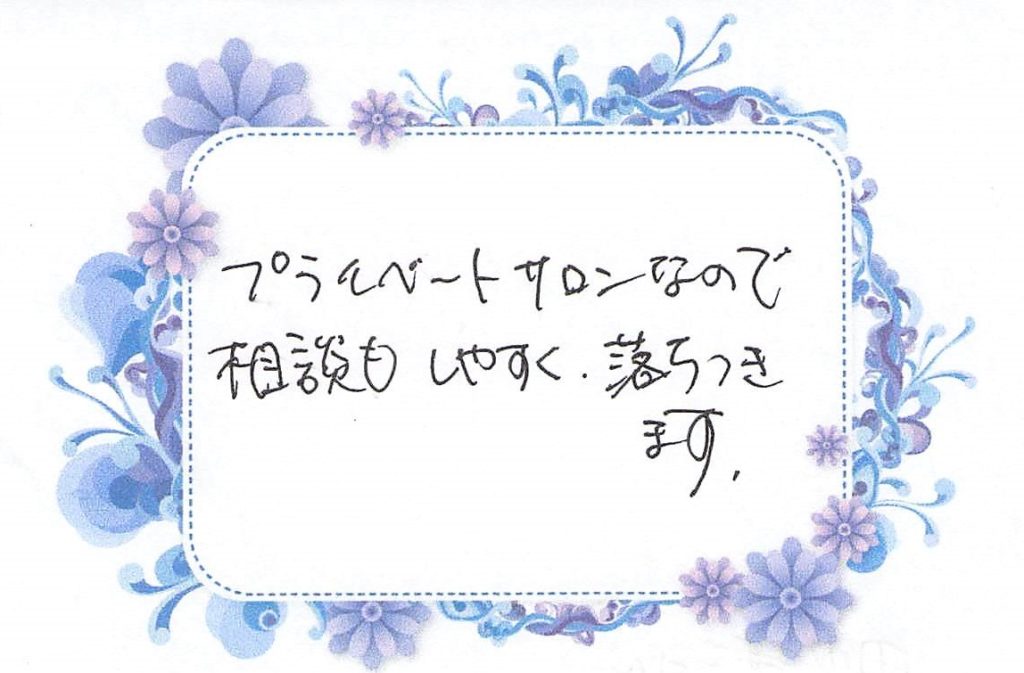 プライベートサロンなので
相談も しやすく、落ちつき
ます。